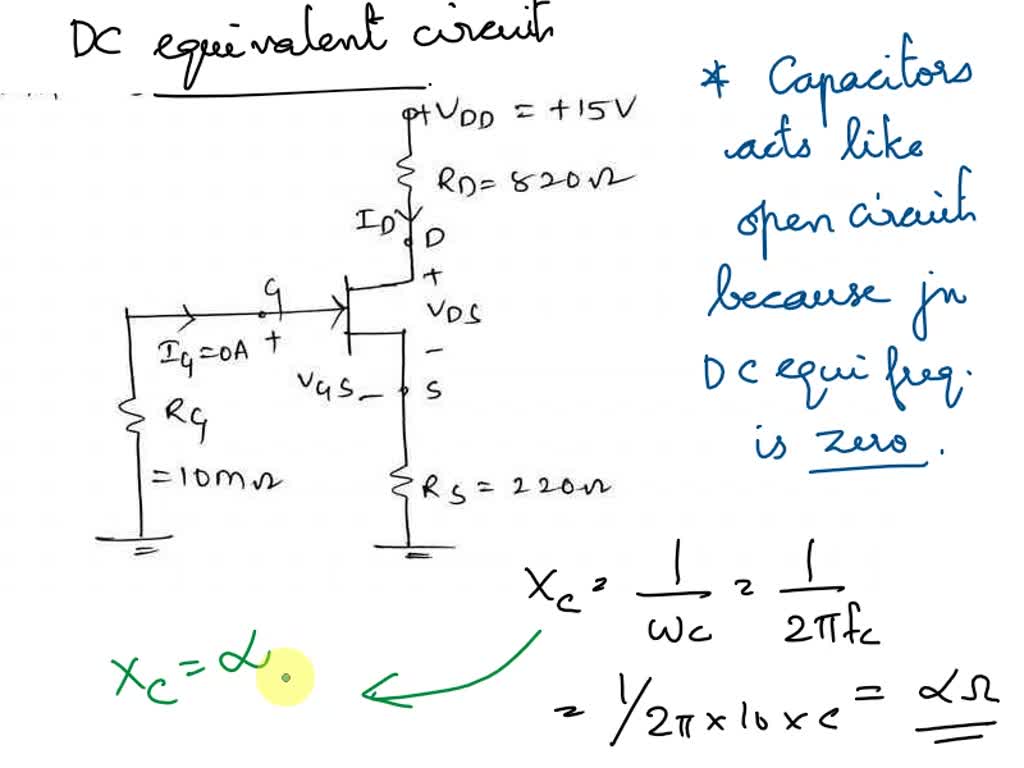 DC equivalent circuit
+VDD = +15V
RD = 820Ω
ID
D
+
VDS
-
G
+
IG = 0A
VGS -
S
RG
= 10mΩ
RS = 220Ω
* Capacitors
acts like
open circuit
because in
DC equi freq.
is zero.
XC = 1/ωC = 1/2πfC
= 1/2π × 10 × C = αΩ
XC = α